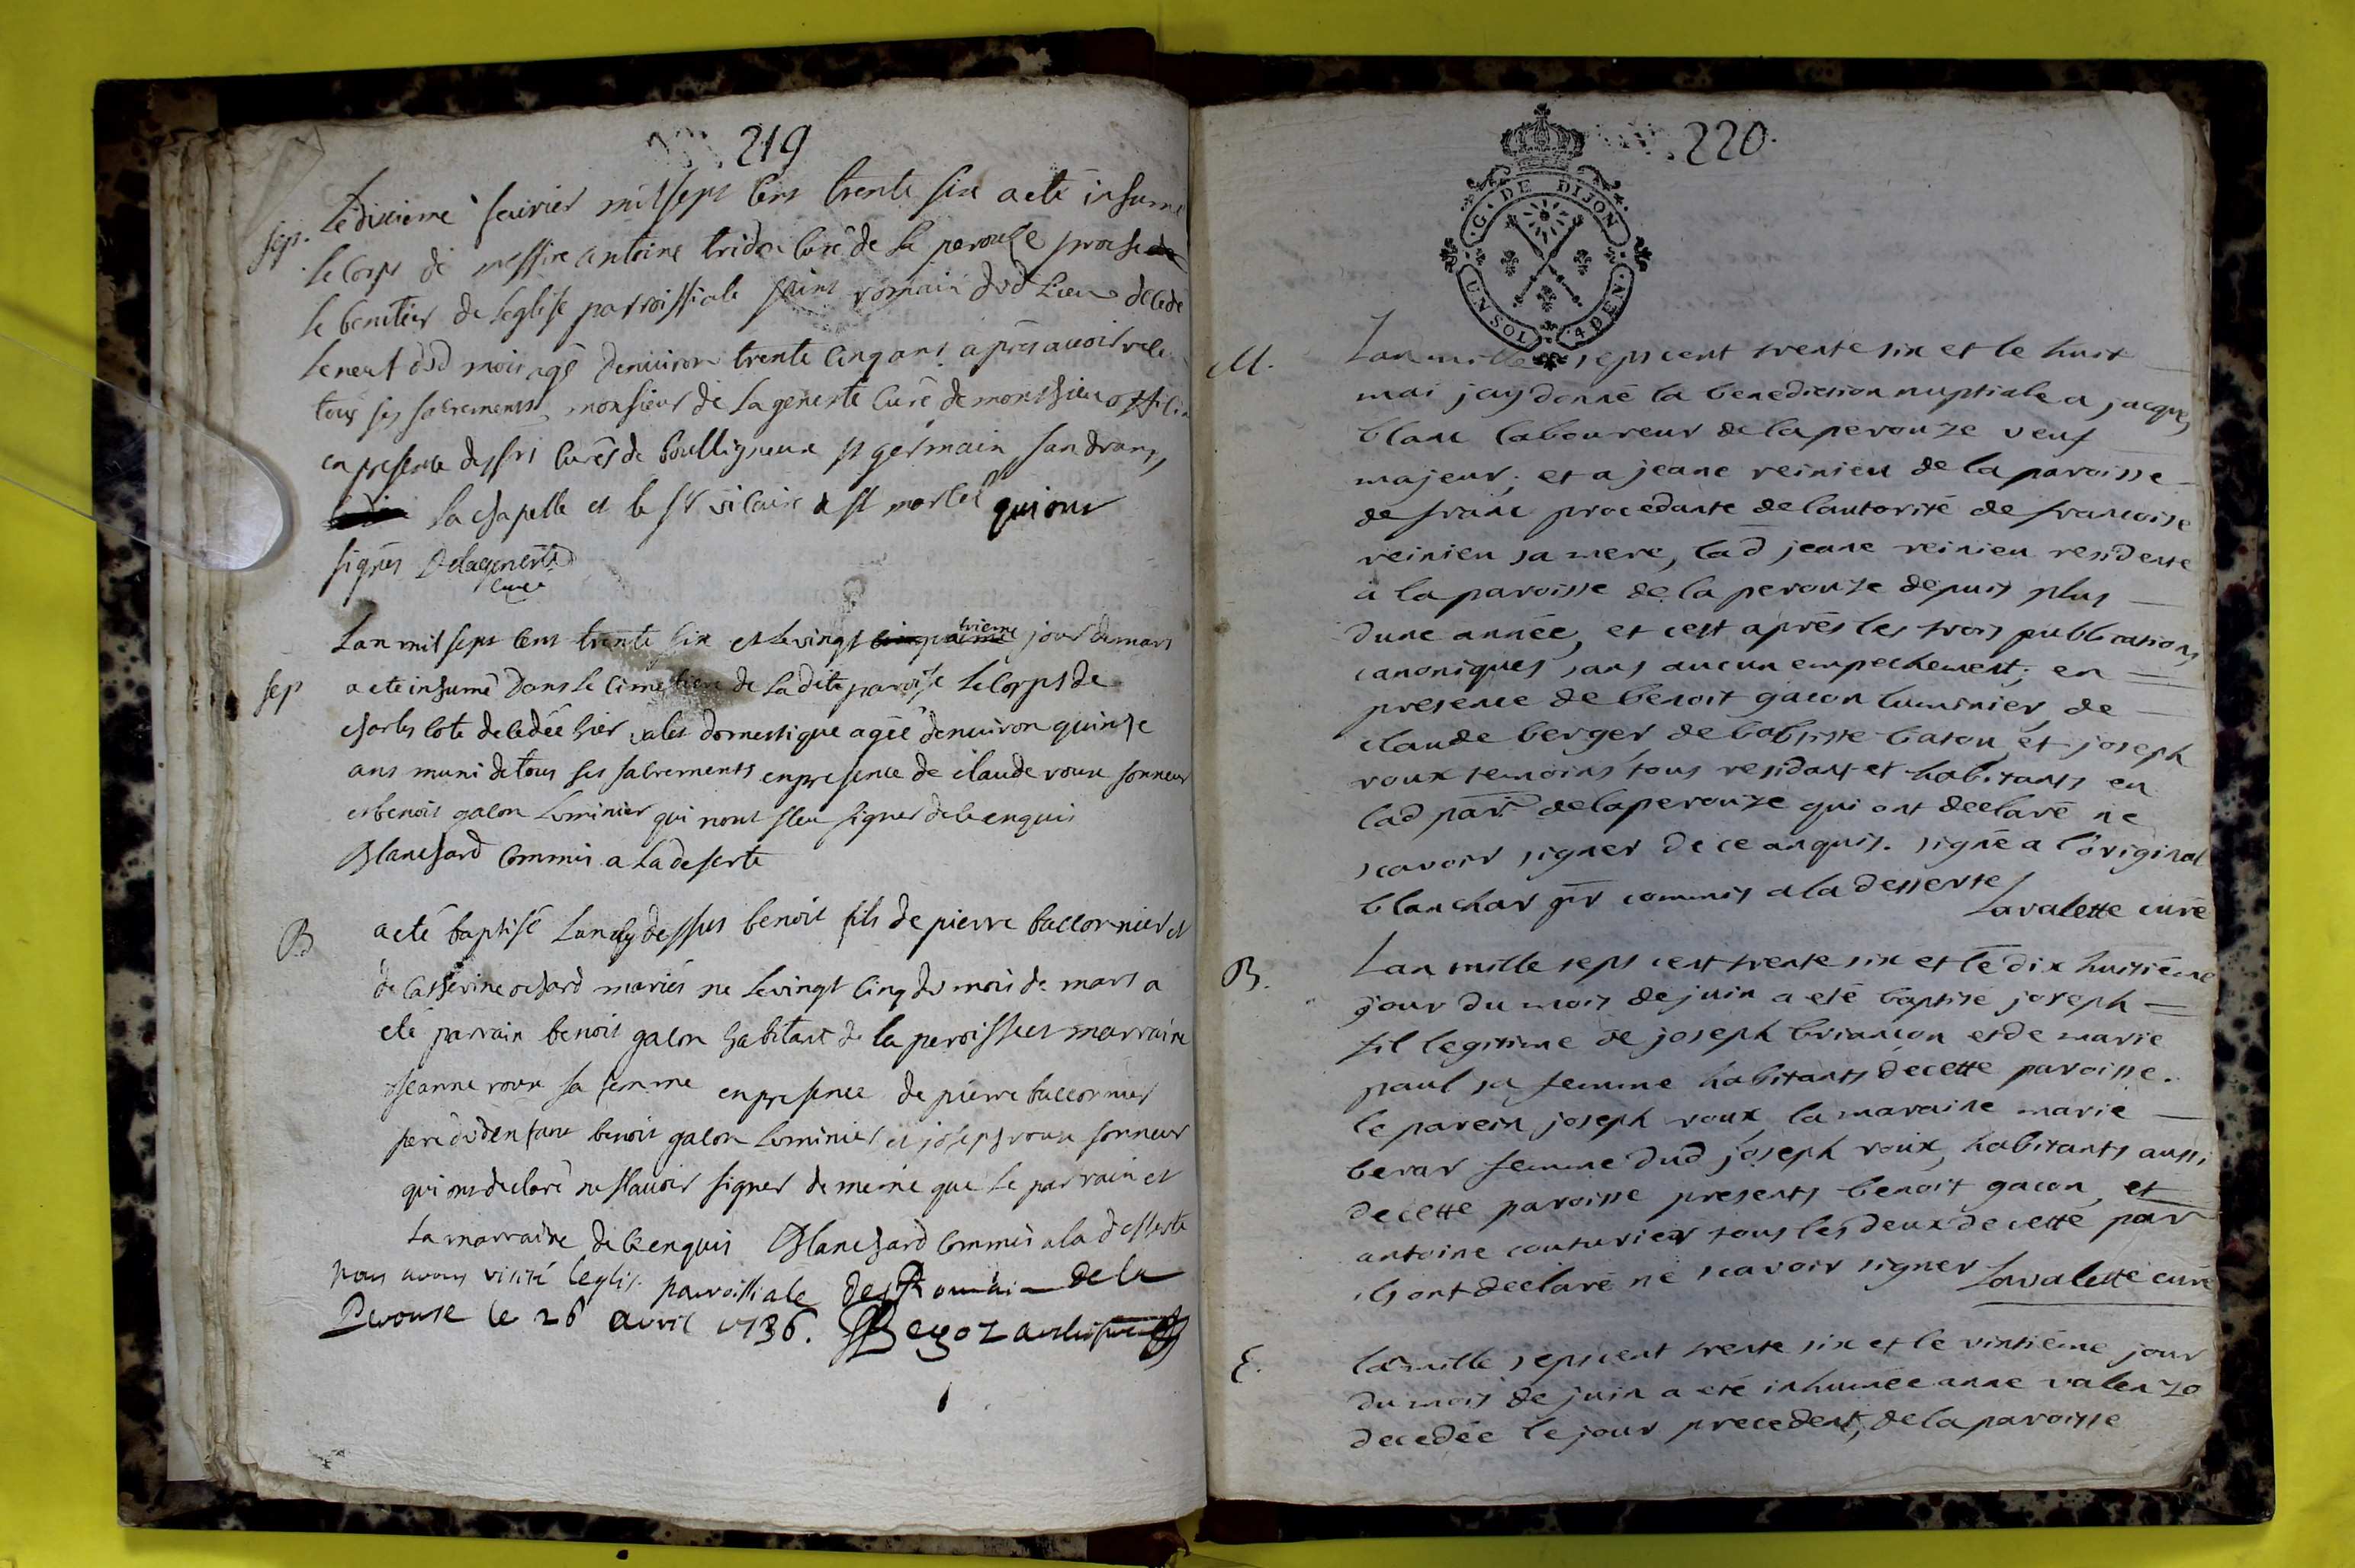 219
sep. Le dixieme feuvrier mil sept cens trente six a eté inhumé
le corps de messire antoine tridon curé de la perouse proche
le benitier de leglise parroissiale saint romain dud lieu decedé
le neuf dud mois agé denuiron trente cinq ans apres auoir
tous ses sacrements monsieur de lageneste curé de monthieu
en presence des srs curés de boulligneux st germain sandrans
la chapelle et le sr vicaire de st marcel qui ont
signés Delageneste
curé
Lan mil sept cens trente six et le vingt trieme jour de mars
sep a eté inhumé dans le cimetiere de la dite paroisse le corps de
charles cote decedée hier valet domestique agée denuiron quinse
ans muni de tous ses sacrements en presence de claude roux sonneur
et benoit gacon luminier qui nont sceu signer de ce enquis
Blanchard commis a la deserte
B a eté baptisé lan cy dessus benoit fils de pierre baccornier et
de catherine ochard mariés ne le vingt cinq du mois de mars a
eté parrain benoit gacon habitant de la paroisse et marraine
jeanne roux sa femme en presence de pierre baccornier
pere dud enfant benoit gacon luminier et joseph roux sonneur
qui ont declaré ne scauoir signer de meme que le parrain et
la marraine de ce enquis Blanchard commis a la desserte
nous avons visité leglise parroissiale de st Romain de la
Perouse le 26 avril 1736.
220.
G. DE DIJON
UN SOL 4 DEN.
M. Lan mille sept cent trente six et le huit
mai jay donné la benediction nuptiale a jacque
blanc laboureur de la perouze veuf
majeur; et a jeane reinieu de la paroisse
de franc procedante de lautorité de francoise
reinieu sa mere, lad jeane reinieu residente
a la paroisse de la perouze depuis plus
dune année, et cest aprés les trois publications
canoniques sans aucun empechement; en
presence de benoit gacon luminier, de
claude berger de babtiste baton, et joseph
roux temoins tous residants et habitants en
lad par. de laperouze qui ont declaré ne
scavoir signer de ce anquis. signé a l'original
blanchar ptr commis a la desserte
Lavalette curé
B. Lan mille sept cent trente six et le dix huitiéme
jour du mois de juin a eté baptisé joseph
fil legitime de joseph briancon et de marie
paul sa femme habitants de cette paroisse.
le parein joseph roux, la maraine marie
berar femme dud joseph roux, habitants aussi
de cette paroisse presents benoit gacon, et
antoine couturier tous les deux de cette par
ils ont declaré ne scavoir signer Lavalette curé
E. lan mille sept cent trente six et le vintiéme jour
du mois de juin a eté inhumée anne valenzo
decedée le jour precedent, de la paroisse